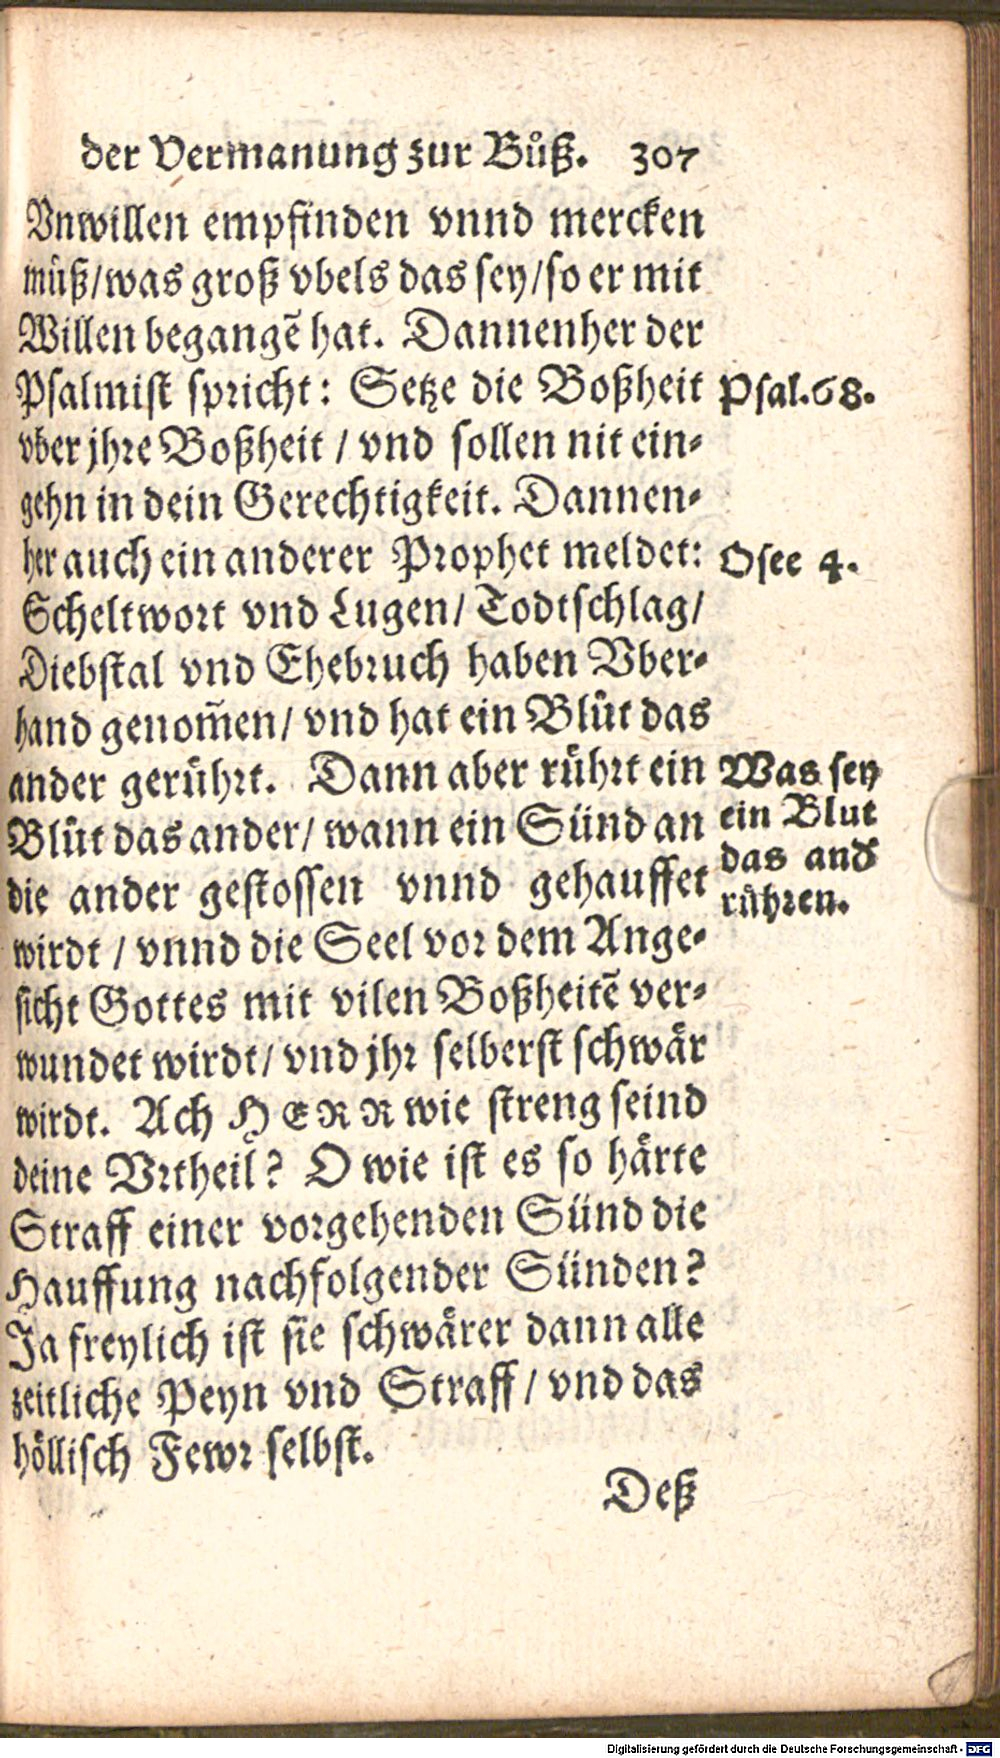 der Vermanung zur Bůß. 307
Vnwillen empfinden vnnd mercken
můß/was groß vbels das sey/so er mit
Willen begangẽ hat. Dannenher der
Psalmist spricht: Setze die Boßheit
vber jhre Boßheit / vnd sollen nit ein-
gehn in dein Gerechtigkeit. Dannen-
her auch ein anderer Prophet meldet:
Scheltwort vnd Lugen/ Todtschlag/
Diebstal vnd Ehebruch haben Vber-
hand genom̃en/ vnd hat ein Blůt das
ander gerührt. Dann aber rührt ein
Blůt das ander/ wann ein Sünd an
die ander gestossen vnnd gehauffet
wirdt / vnnd die Seel vor dem Ange-
sicht Gottes mit vilen Boßheitẽ ver-
wundet wirdt/ vnd jhr selberst schwår
wirdt. Ach HERR wie streng seind
deine Vrtheil? O wie ist es so hårte
Straff einer vorgehenden Sünd die
Hauffung nachfolgender Sünden?
Ja freylich ist sie schwårer dann alle
zeitliche Peyn vnd Straff / vnd das
höllisch Fewr selbst.
Deß
Psal.68.
Osee 4.
Was sey
ein Blut
das and
rühren.
Digitalisierung gefördert durch die Deutsche Forschungsgemeinschaft - DFG